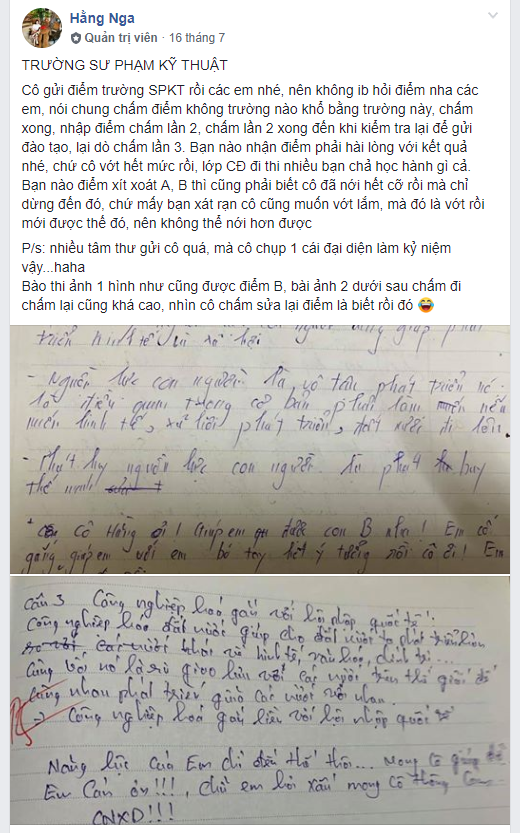 Hằng Nga
Quản trị viên · 16 tháng 7
TRƯỜNG SƯ PHẠM KỸ THUẬT
Cô gửi điểm trường SPKT rồi các em nhé, nên không ib hỏi điểm nha các
em, nói chung chấm điểm không trường nào khổ bằng trường này, chấm
xong, nhập điểm chấm lần 2, chấm lần 2 xong đến khi kiểm tra lại để gửi
đào tạo, lại dò chấm lần 3. Bạn nào nhận điểm phải hài lòng với kết quả
nhé, chứ cô vớt hết mức rồi, lớp CĐ đi thi nhiều bạn chả học hành gì cả.
Bạn nào điểm xít xoát A, B thì cũng phải biết cô đã nới hết cỡ rồi mà chỉ
dừng đến đó, chứ mấy bạn xát rạn cô cũng muốn vớt lắm, mà đó là vớt rồi
mới được thế đó, nên không thể nới hơn được
P/s: nhiều tâm thư gửi cô quá, mà cô chụp 1 cái đại diện làm kỷ niệm
vậy...haha
Bào thi ảnh 1 hình như cũng được điểm B, bài ảnh 2 dưới sau chấm đi
chấm lại cũng khá cao, nhìn cô chấm sửa lại điểm là biết rồi đó 😂
triển kinh tế xã hội
- Nguồn lực con người là vô tận phát triển nó
là điều quan trọng cơ bản phải làm nếu
muốn kinh tế, xã hội phát triển, đất nước đi lên.
- Phát huy nguồn lực con người là phát huy
thế mạnh
Cô Hằng ơi! Giúp em được con B nha! Em cố
gắng giúp em với em bó tay hết ý tưởng rồi cô ơi! Em
Câu 3 Công nghiệp hoá gắn với hội nhập quốc tế:
Công nghiệp hoá đất nước giúp cho đất nước ta phát triển hơn
các nước khác về kinh tế, văn hoá, chính trị...
cùng với nó là sự giao lưu với các nước trên thế giới để
cùng nhau phát triển giữa các nước với nhau.
=> Công nghiệp hoá gắn liền với hội nhập quốc tế
Năng lực của Em chỉ đến thế thôi... Mong Cô giúp đỡ
Em Cám ơn!!!, chữ em hơi xấu mong cô thông cảm
CNXD!!!